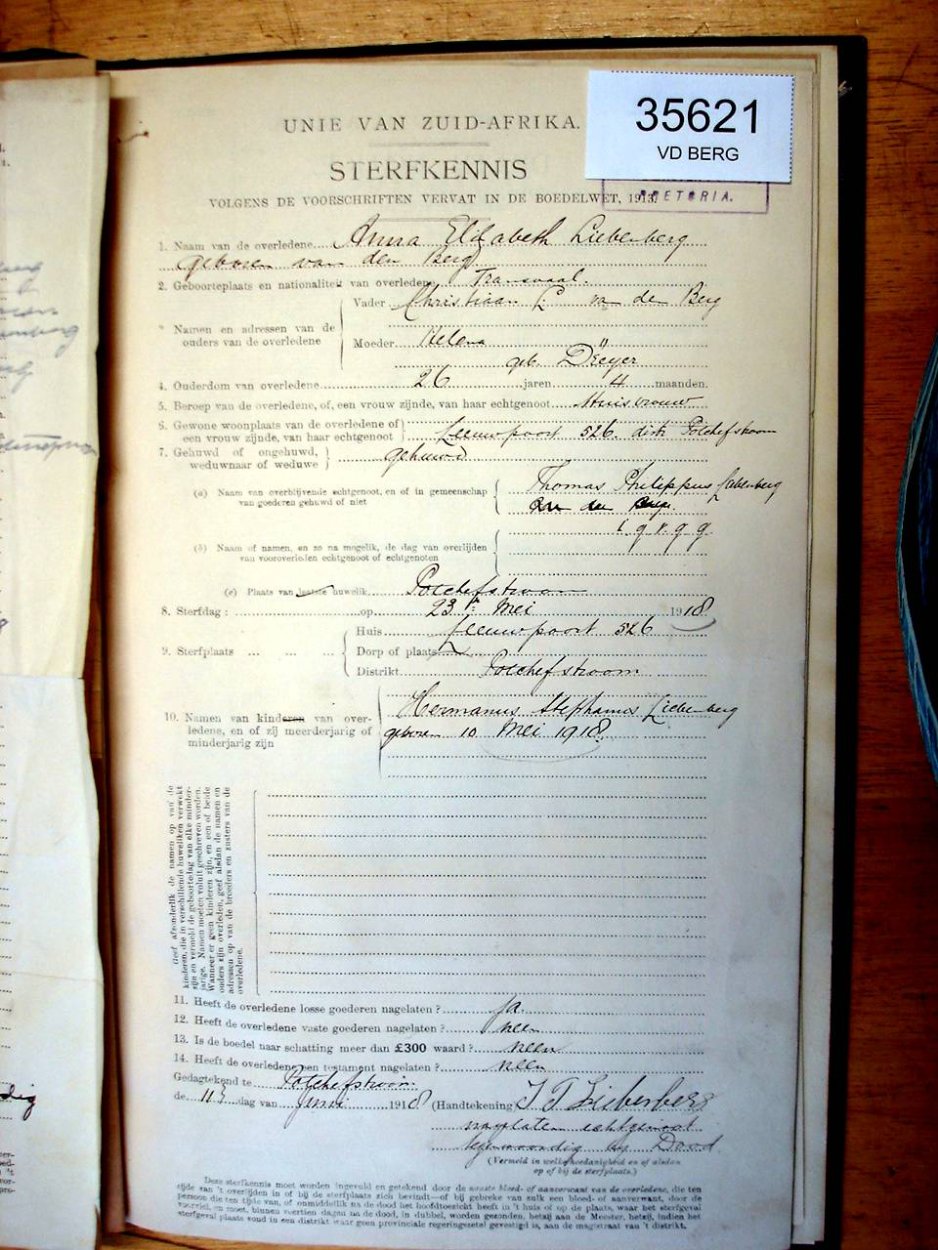 35621
VD BERG
UNIE VAN ZUID-AFRIKA.
STERFKENNIS
VOLGENS DE VOORSCHRIFTEN VERVAT IN DE BOEDELWET, 1913.
PRETORIA.
1. Naam van de overledene Anna Elizabeth Liebenberg
geboren van den Berg
2. Geboorteplaats en nationaliteit van overledene Transvaal.
Namen en adressen van de ouders van de overledene
Vader Christiaan L van den Berg
Moeder Helena
geb. Dreyer
4. Ouderdom van overledene 26 jaren 4 maanden.
5. Beroep van de overledene, of, een vrouw zijnde, van haar echtgenoot Huisvrouw
6. Gewone woonplaats van de overledene of
een vrouw zijnde, van haar echtgenoot Leeuwpoort 526. dist Potchefstroom
7. Gehuwd of ongehuwd,
weduwnaar of weduwe gehuwd
(a) Naam van overblijvende echtgenoot, en of in gemeenschap
van goederen gehuwd of niet
Thomas Philippus Liebenberg
(b) Naam of namen, en zo na mogelik, de dag van overlijden
van vooroverleden echtgenoot of echtgenoten
(c) Plaats van laatste huwelik Potchefstroom
8. Sterfdag: op 23 Mei 1918
9. Sterfplaats
Huis Leeuwpoort 526
Dorp of plaats
Distrikt Potchefstroom
10. Namen van kinderen van over-
ledene, en of zij meerderjarig of
minderjarig zijn
Hermanus Stephanus Liebenberg
geboren 10 Mei 1918.
Geef afzonderlik de namen op van de
kinderen, die in verschillende huweliken verwekt
zijn en vermeld de geboortedag van elke minder-
jarige. Namen moeten voluit geschreven worden.
Wanneer er geen kinderen zijn, en een of beide
ouders zijn overleden, geef alsdan de namen en
adressen op van de broeders en zusters van de
overledene.
11. Heeft de overledene losse goederen nagelaten? Ja.
12. Heeft de overledene vaste goederen nagelaten? neen
13. Is de boedel naar schatting meer dan £300 waard? neen
14. Heeft de overledene een testament nagelaten? neen
Gedagtekend te Potchefstroom
de 11 dag van Junie 1918 (Handtekening) T. P. Liebenberg
nagelaten echtgenoot
tegenwoordig by Dood
(Vermeld in welke hoedanigheid en of alsdan
op of bij de sterfplaats.)
Deze sterfkennis moet worden ingevuld en getekend door de naaste bloed- of aanverwant van de overledene, die ten
tijde van 't overlijden in of bij de sterfplaats zich bevindt—of bij gebreke van zulk een bloed- of aanverwant, door de
persoon die ten tijde van, of onmiddellik na de dood het hoofdtoezicht heeft in 't huis of op de plaats, waar het sterfgeval
voorviel, en moet, binnen veertien dagen na de dood, in dubbel, worden gezonden, hetzij aan de Meester, hetzij, indien het
sterfgeval plaats vond in een distrikt waar geen provinciale regeringszetel gevestigd is, aan de magistraat van 't distrikt.